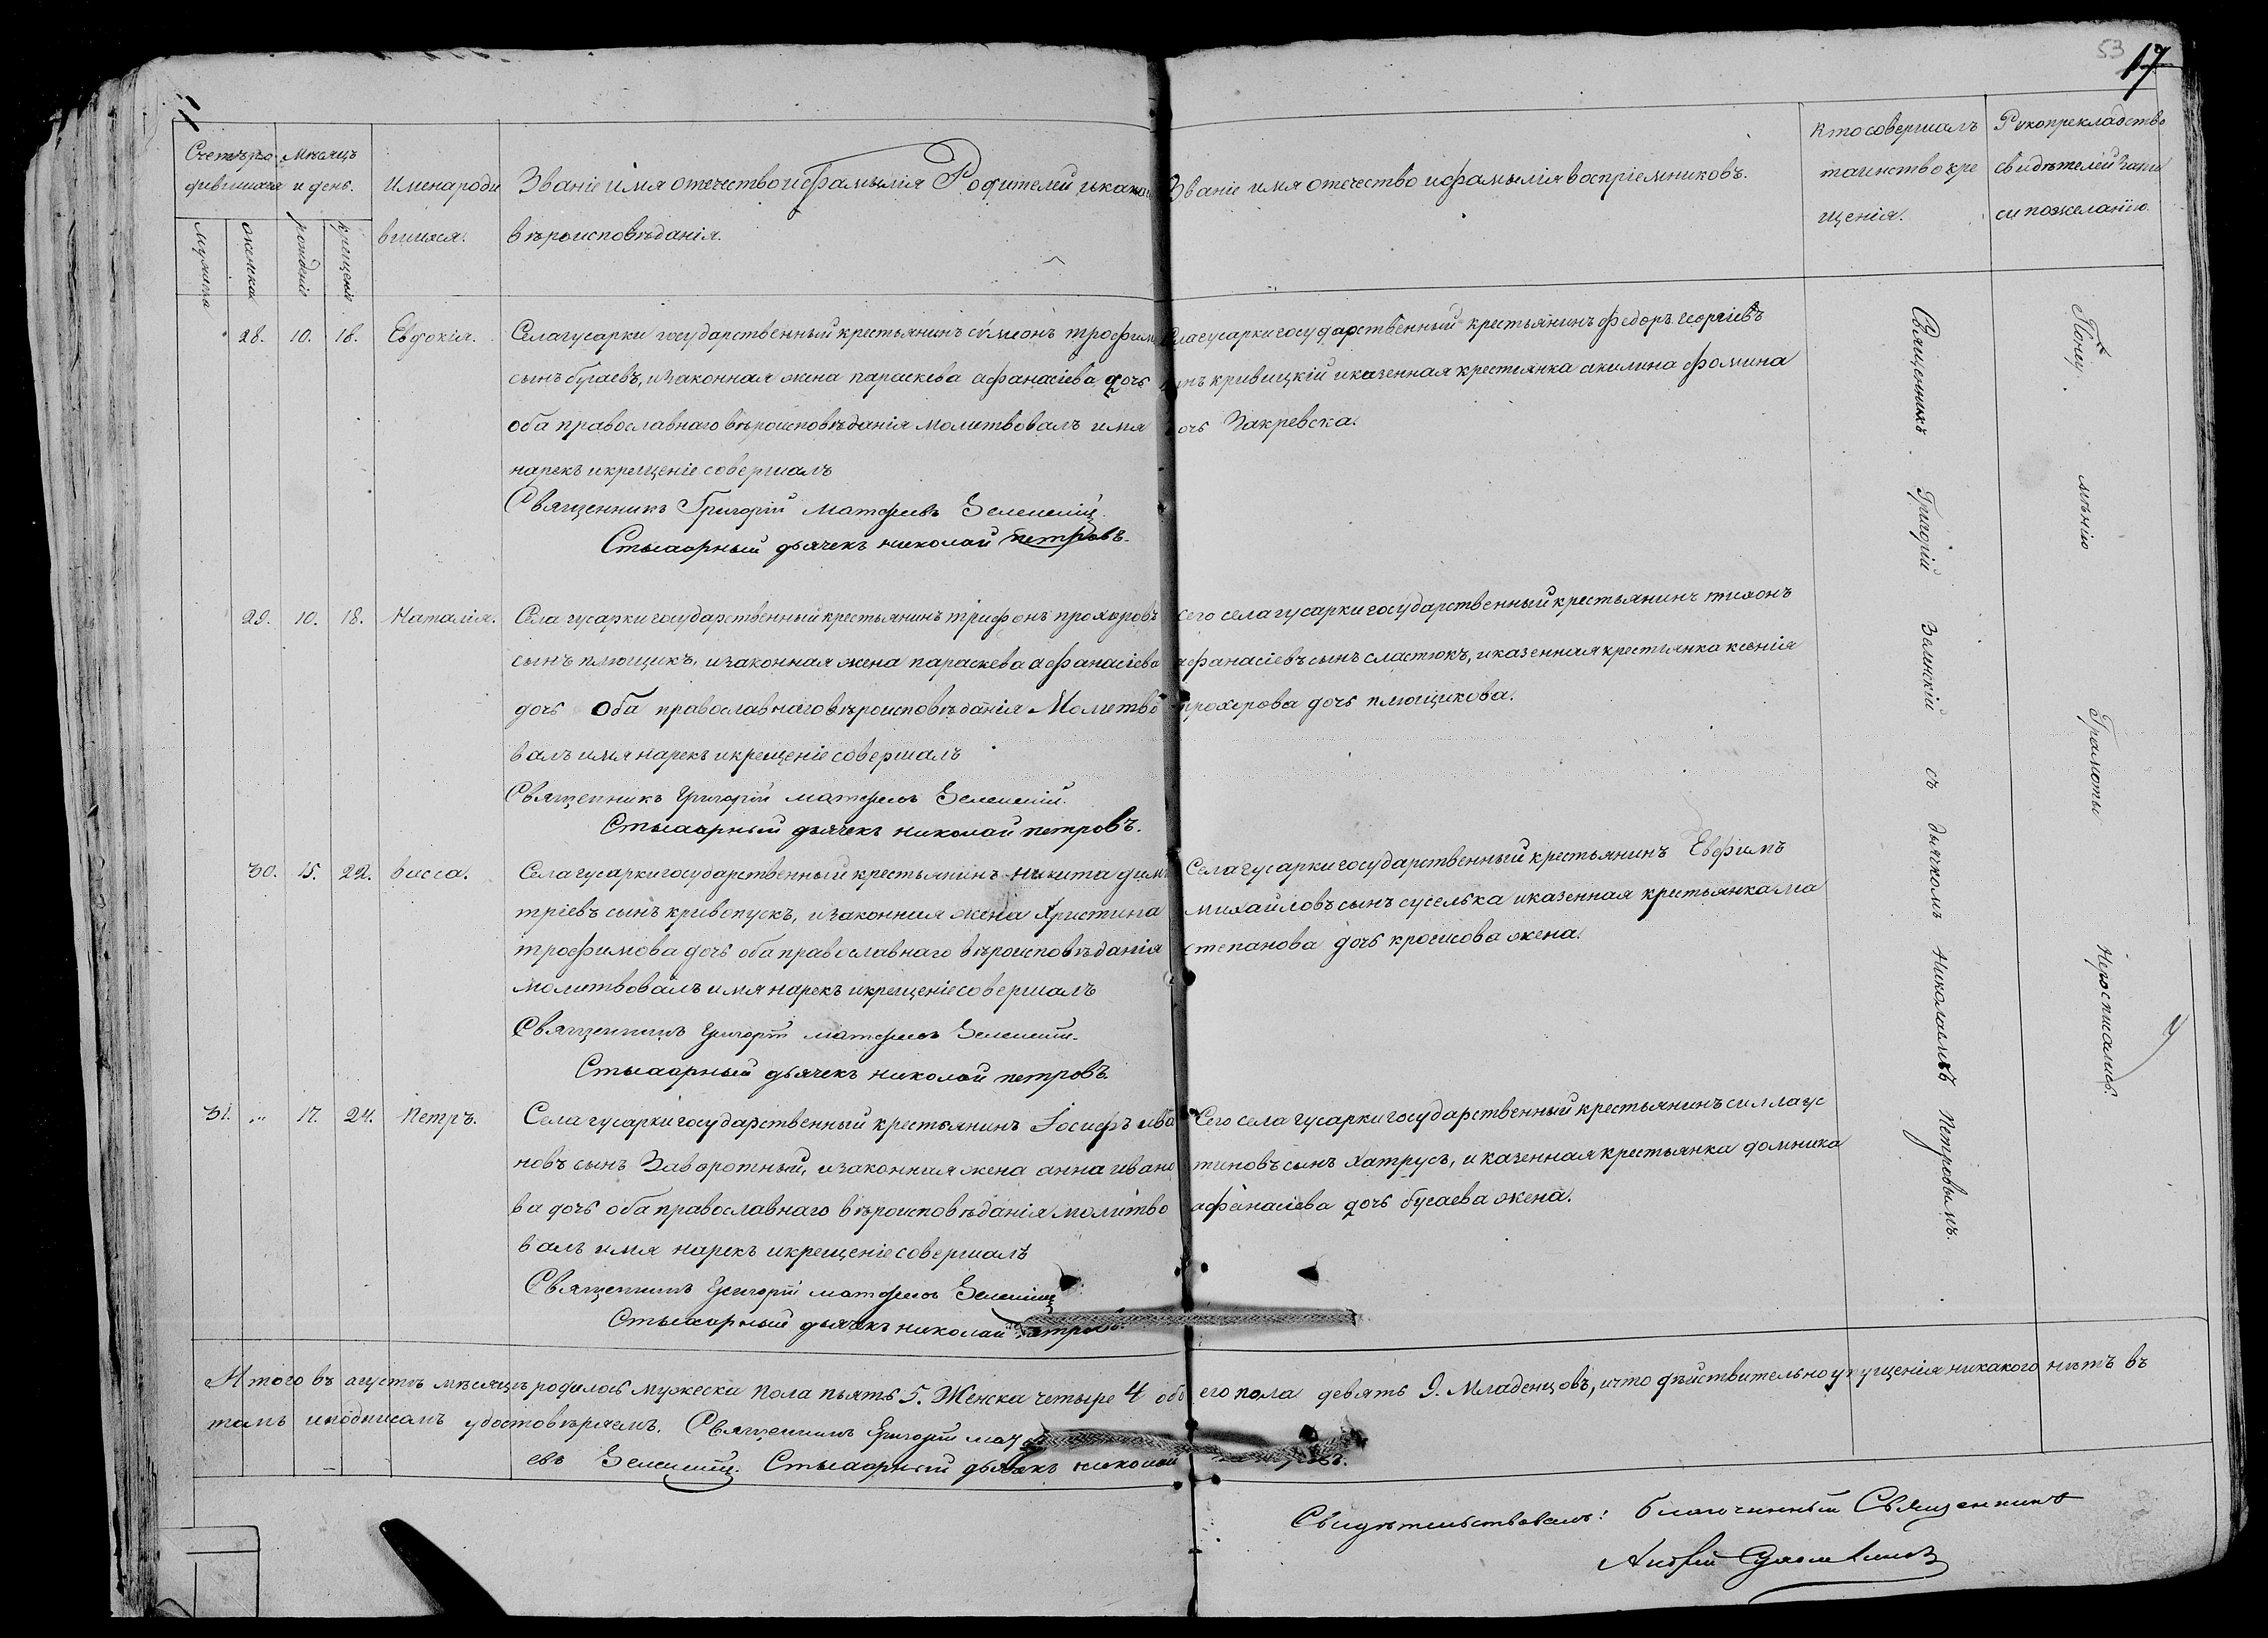 53 17
Счетъ ро
дившихся
Мѣсяцъ
и день.
мужеска
женска
рожденія
крещенія
Имена роди
вшихся.
Званіе имя отечество и фамилія Родителей и какого
вѣроисповѣданія.
Званіе имя отечество и фамылія воспріемниковъ.
Кто совершалъ
таинство кре
щенія.
Рукоприкладство
свидѣтелей запи
си по желанію.
28. 10. 18. Евдокія.
Села гусарки государственный крестьянинъ сѵмеонъ трофим
сынъ бугаевъ, и законная жена параскева афанасіева дочь
оба православнаго вѣроисповѣданія молитвовалъ имя
нарекъ и крещеніе совершалъ
Священникъ Григорій Матфеевъ
Стихарный дьячекъ николай петровъ.
Села гусарки государственный крестьянинъ федоръ георгіевъ
сынъ кривицкій и казенная крестьянка акилина фомина
дочь Закревска.
29. 10. 18. Наталія.
Села гусарки государственный крестьянинъ трифонъ прохоровъ
сынъ плющикъ, и законная жена параскева афанасіева
дочь Оба православнаго вѣроисповѣданія Молитво
валъ имя нарекъ и крещеніе совершалъ
Священникъ Григорій Матфеевъ
Стихарный дьячекъ николай петровъ.
Сего села гусарки государственный крестьянинъ тихонъ
афанасіевъ сынъ сластюкъ, и казенная крестьянка ксенія
прохорова дочь плющикова.
30. 15. 22. васса.
Села гусарки государственный крестьянинъ никита дими
тріевъ сынъ кривопускъ, и законная жена христина
трофимова дочь оба православнаго вѣроисповѣданія
молитвовалъ имя нарекъ и крещеніе совершалъ
Священникъ Григорій Матфеевъ
Стихарный дьячекъ николай петровъ.
Села гусарки государственный крестьянинъ Евфимъ
михайловъ сынъ суселька и казенная крестьянка
степанова дочь жена.
31. „ 17. 24. Петръ.
Села гусарки государственный крестьянинъ Іосифъ ива
новъ сынъ Заворотный, и законная жена анна ивано
ва дочь оба православнаго вѣроисповѣданія молитво
валъ имя нарекъ и крещеніе совершалъ
Священникъ Григорій Матфеевъ
Стихарный дьячекъ николай петровъ.
Сего села гусарки государственный крестьянинъ
сынъ хатрусъ, и казенная крестьянка домника
афанасіева дочь бугаева жена.
Священникъ Григорій Зеленскій съ дьячкомъ Николаемъ Петровымъ.
По неу мѣнію Грамоты Нероспислись.
Итого въ августѣ мѣсяцѣ родилось мужеска пола пьять 5. Женска четыре 4 обоего пола девять 9. Младенцовъ, и что дѣйствительно упущенія никакого нѣтъ въ
томъ и подписомъ удостовѣряемъ. Священникъ Григорій Мат
евъ Стихарный дьячекъ николай
Свидѣтельствовалъ: благочинный Священникъ
Андрей